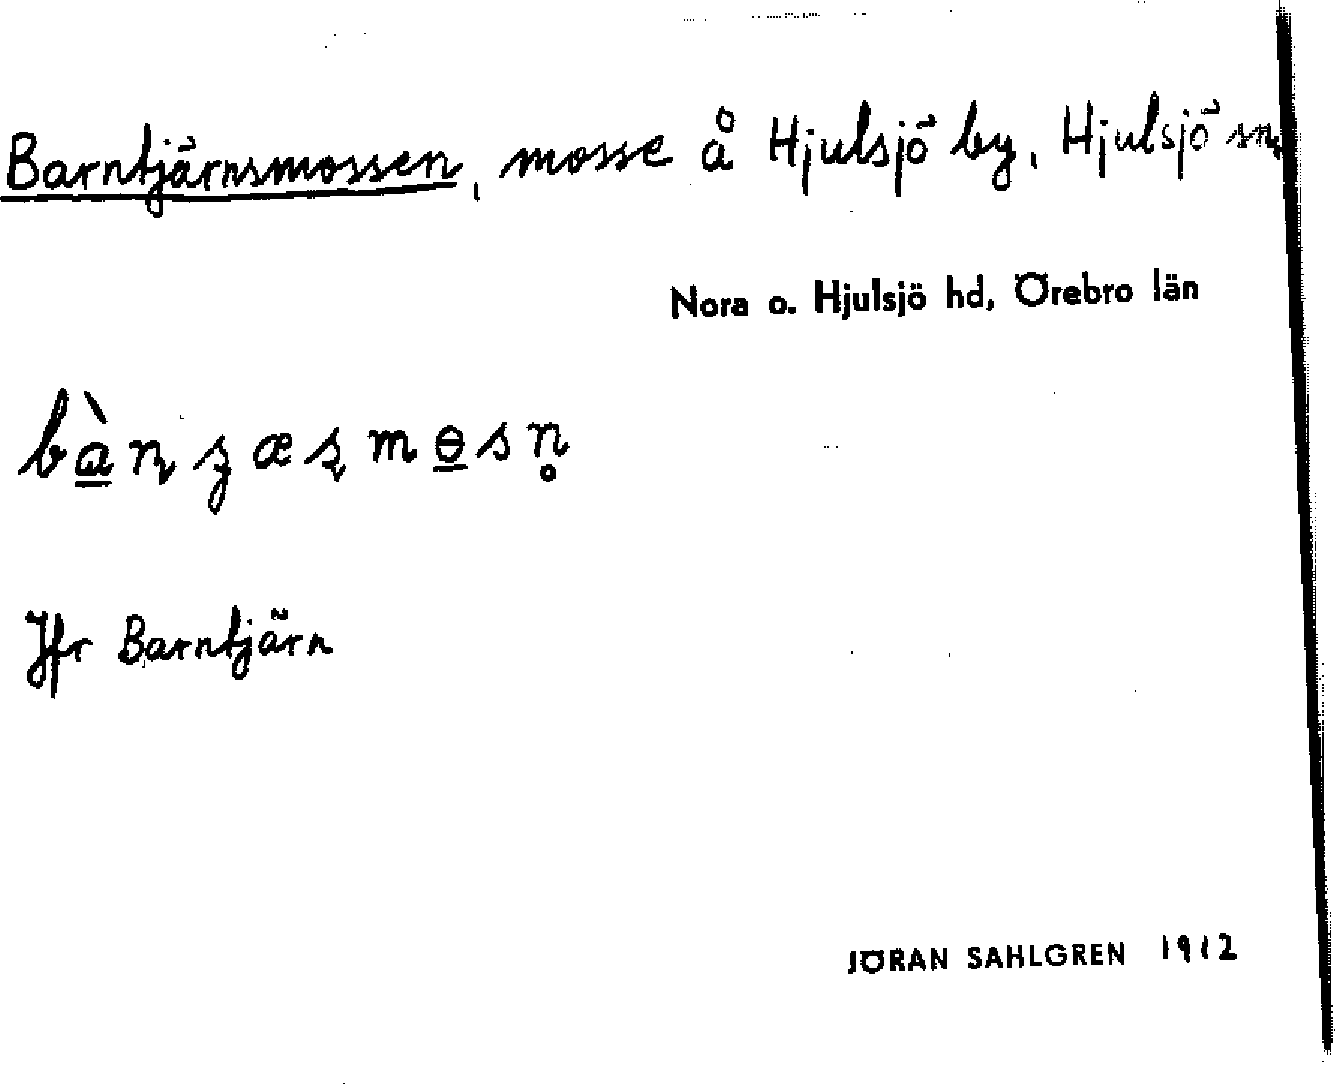 Barntjärnsmossen, mosse å Hjulsjö by, Hjulsjö sn,
Nora o. Hjulsjö hd, Örebro län
Jfr Barntjärn
JÖRAN SAHLGREN 1912